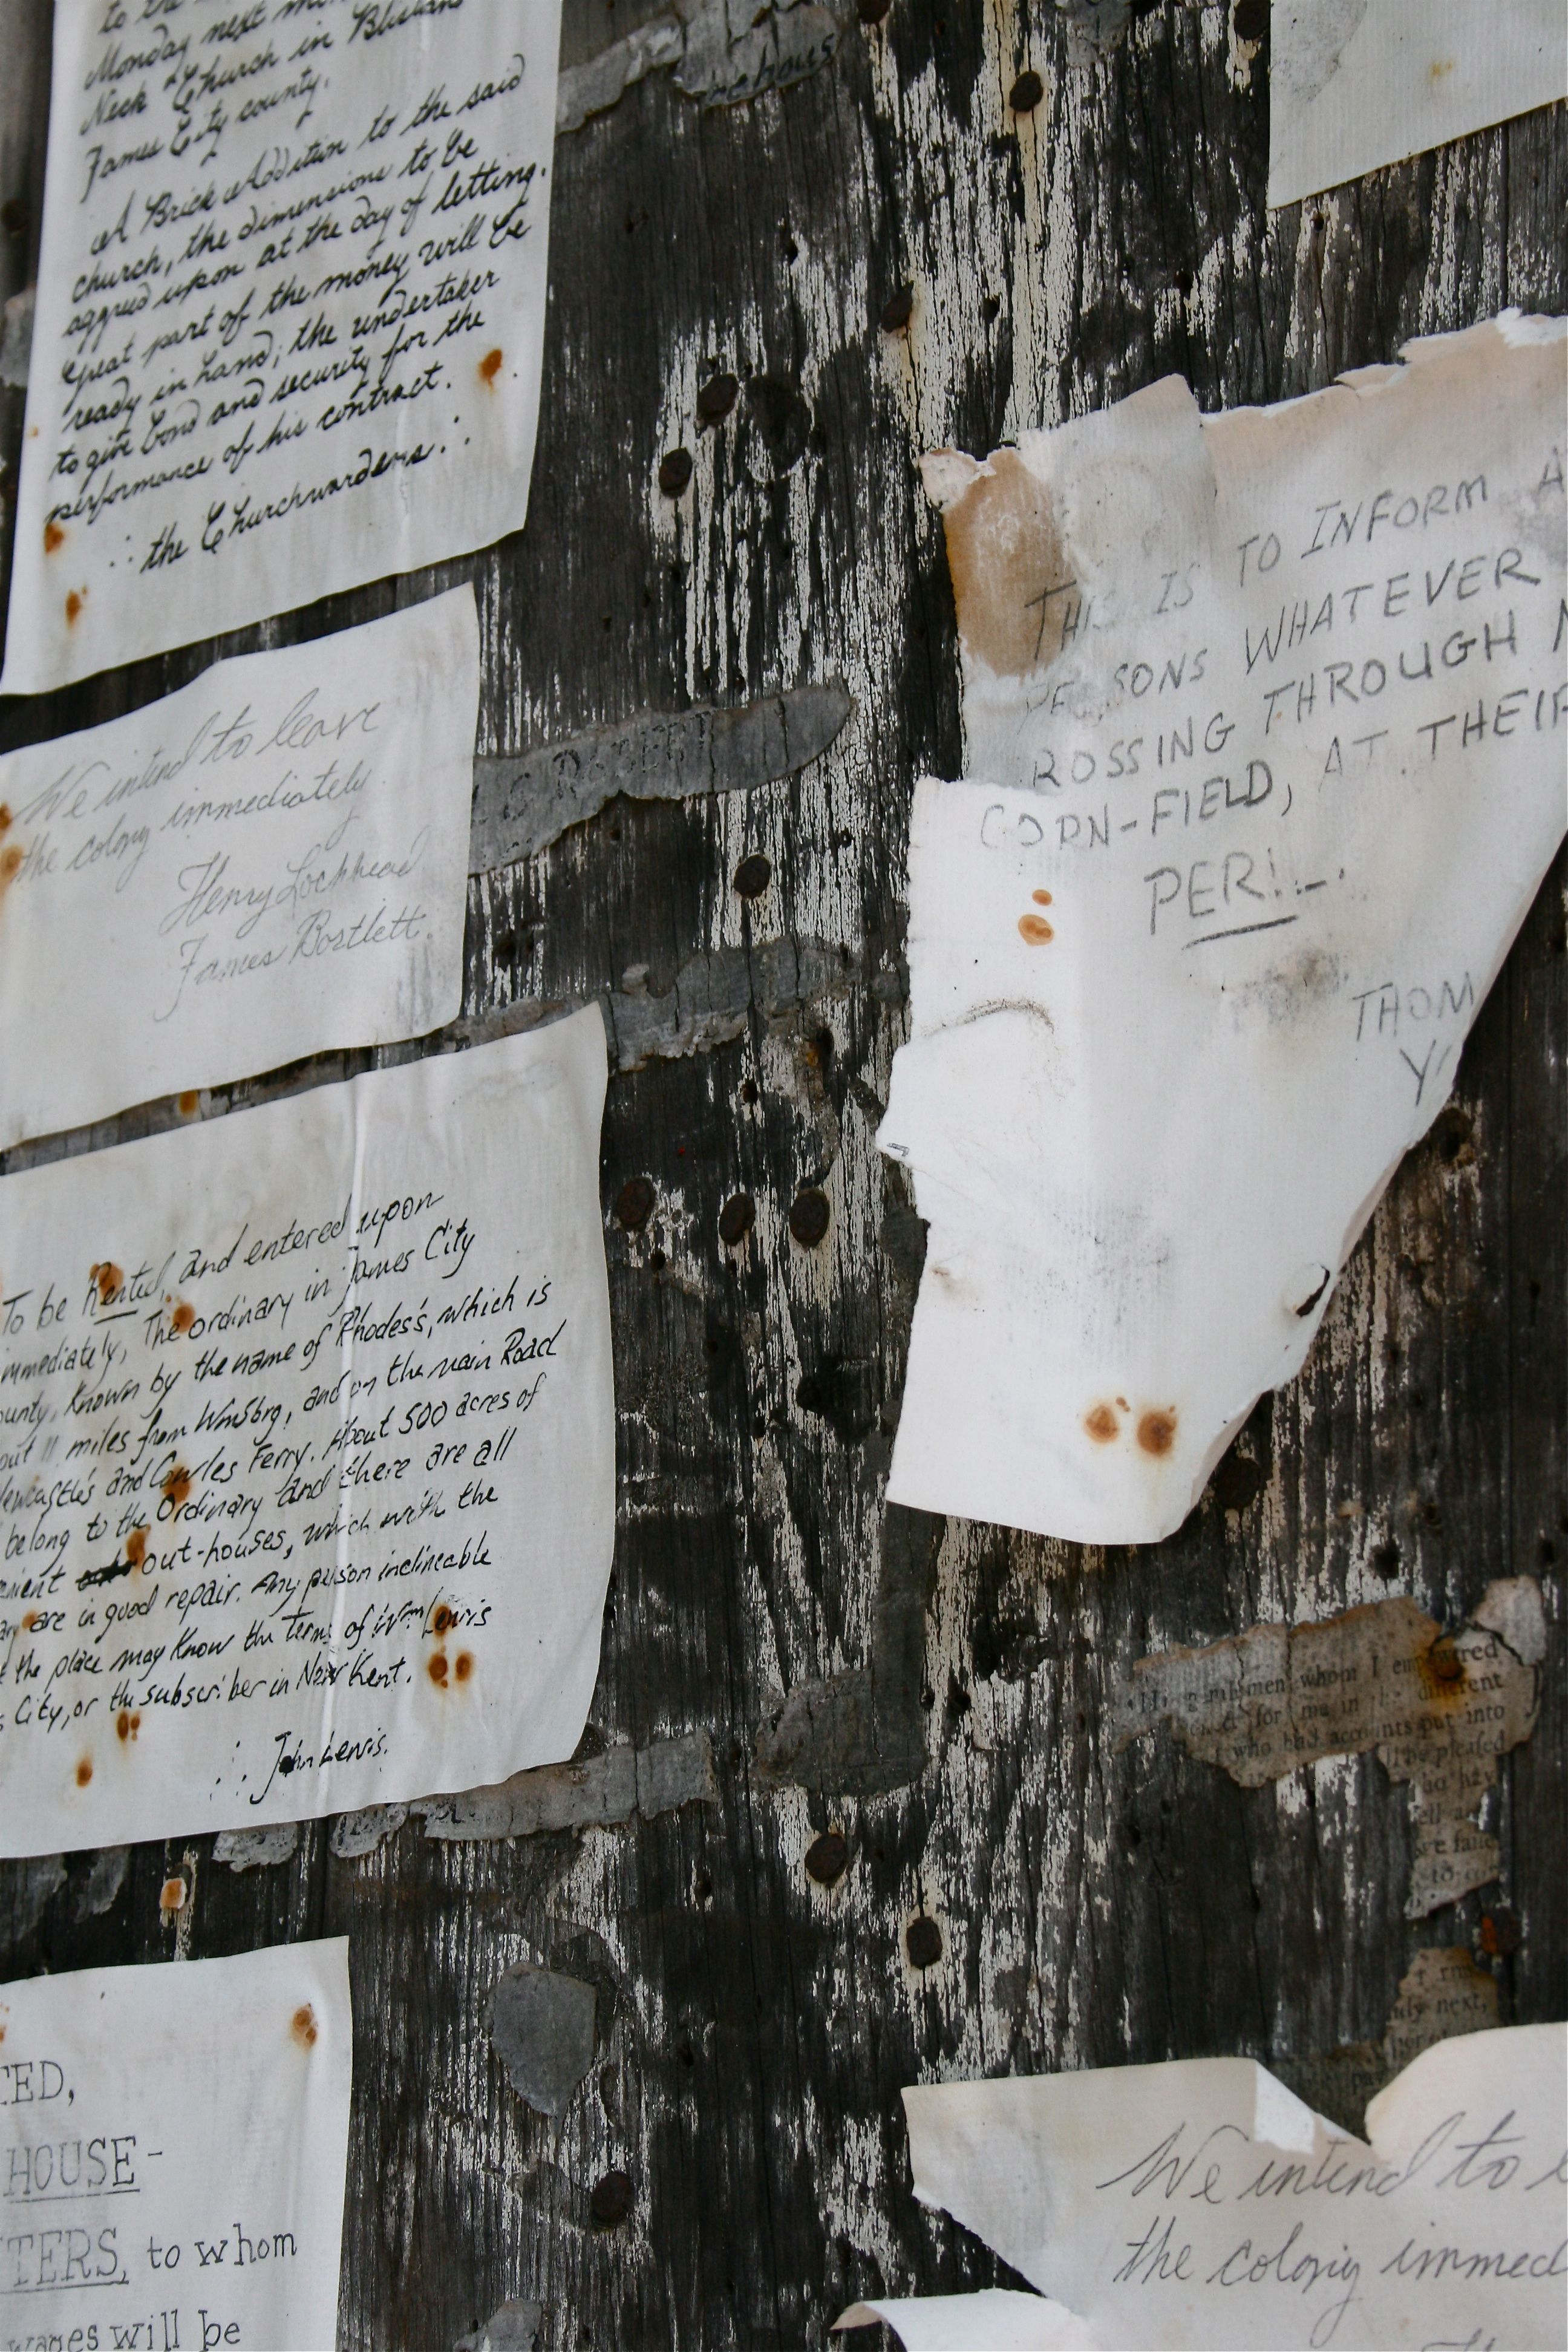 to the
Monday next
Neck Church in
James City county.
A Brick Addition to the said
church, the dimensions to be
aggreed upon at the day of letting.
Great part of the money will be
ready in hand; the undertaker
to give bond and security for the
performance of his contract.
the Churchwardens.
We intend to leave
the colony immediately.
Henry Lochhead
James Bartlett.
To be Rented, and entered upon
immediately, The ordinary in James City
ounty, known by the name of Rhodes's, which is
out 11 miles from Wmsbrg, and on the main Road
Newcastle's and Cowles Ferry. About 500 acres of
belong to the Ordinary and there are all
enient out-houses, which with the
ary are in good repair. Any person inclineable
the place may know the terms of Wm Lewis
City, or the subscriber in New Kent.
John Lewis.
TED,
HOUSE-
TERS, to whom
wages will be
THIS IS TO INFORM A
PE SONS WHATEVER
ROSSING THROUGH M
CORN-FIELD, AT THEIR
PERIL.
THOM
Y
gentlemen whom I empowered
for me in the different
who had accounts put into
ll be pleased
to
next,
We intend to
the colony immed